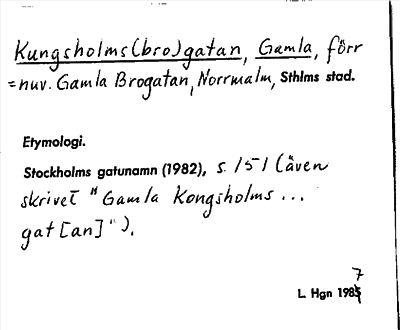 Kungsholms(bro)gatan, Gamla, förr
=nuv. Gamla Brogatan, Norrmalm, Sthlms stad.
Etymologi.
Stockholms gatunamn (1982), s. 151 (även
skrivet "Gamla Kongsholms...
gat[an]").
7
L. Hgn 1985